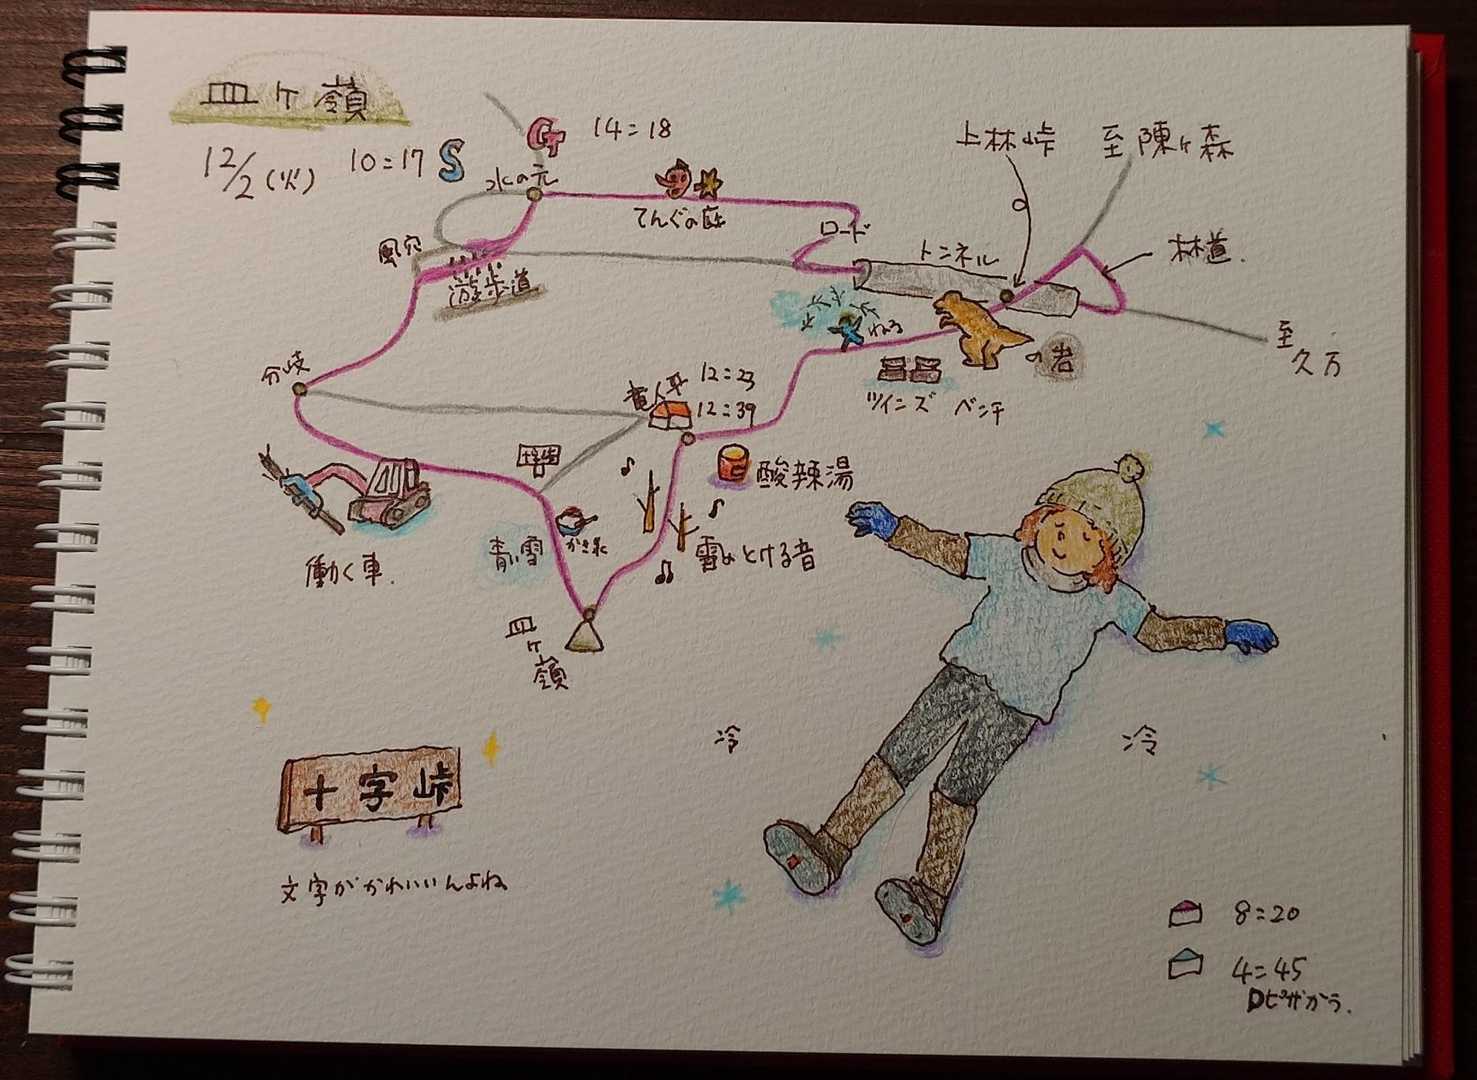 皿ヶ嶺
12/2(火)
10=17 S
G 14=18
水の元
てんぐの庭
ロード
上林峠
至陳ヶ森
林道.
トンネル
風穴
遊歩道
ねる
の岩
至久万
ツインズ ベンチ
分岐
竜人平
12=23
12=39
酸辣湯
働く車.
青い雪
かき氷
雪のとける音
皿ヶ嶺
冷
冷
十字峠
文字がかわいいんよね
8=20
4=45
Dピザかう.